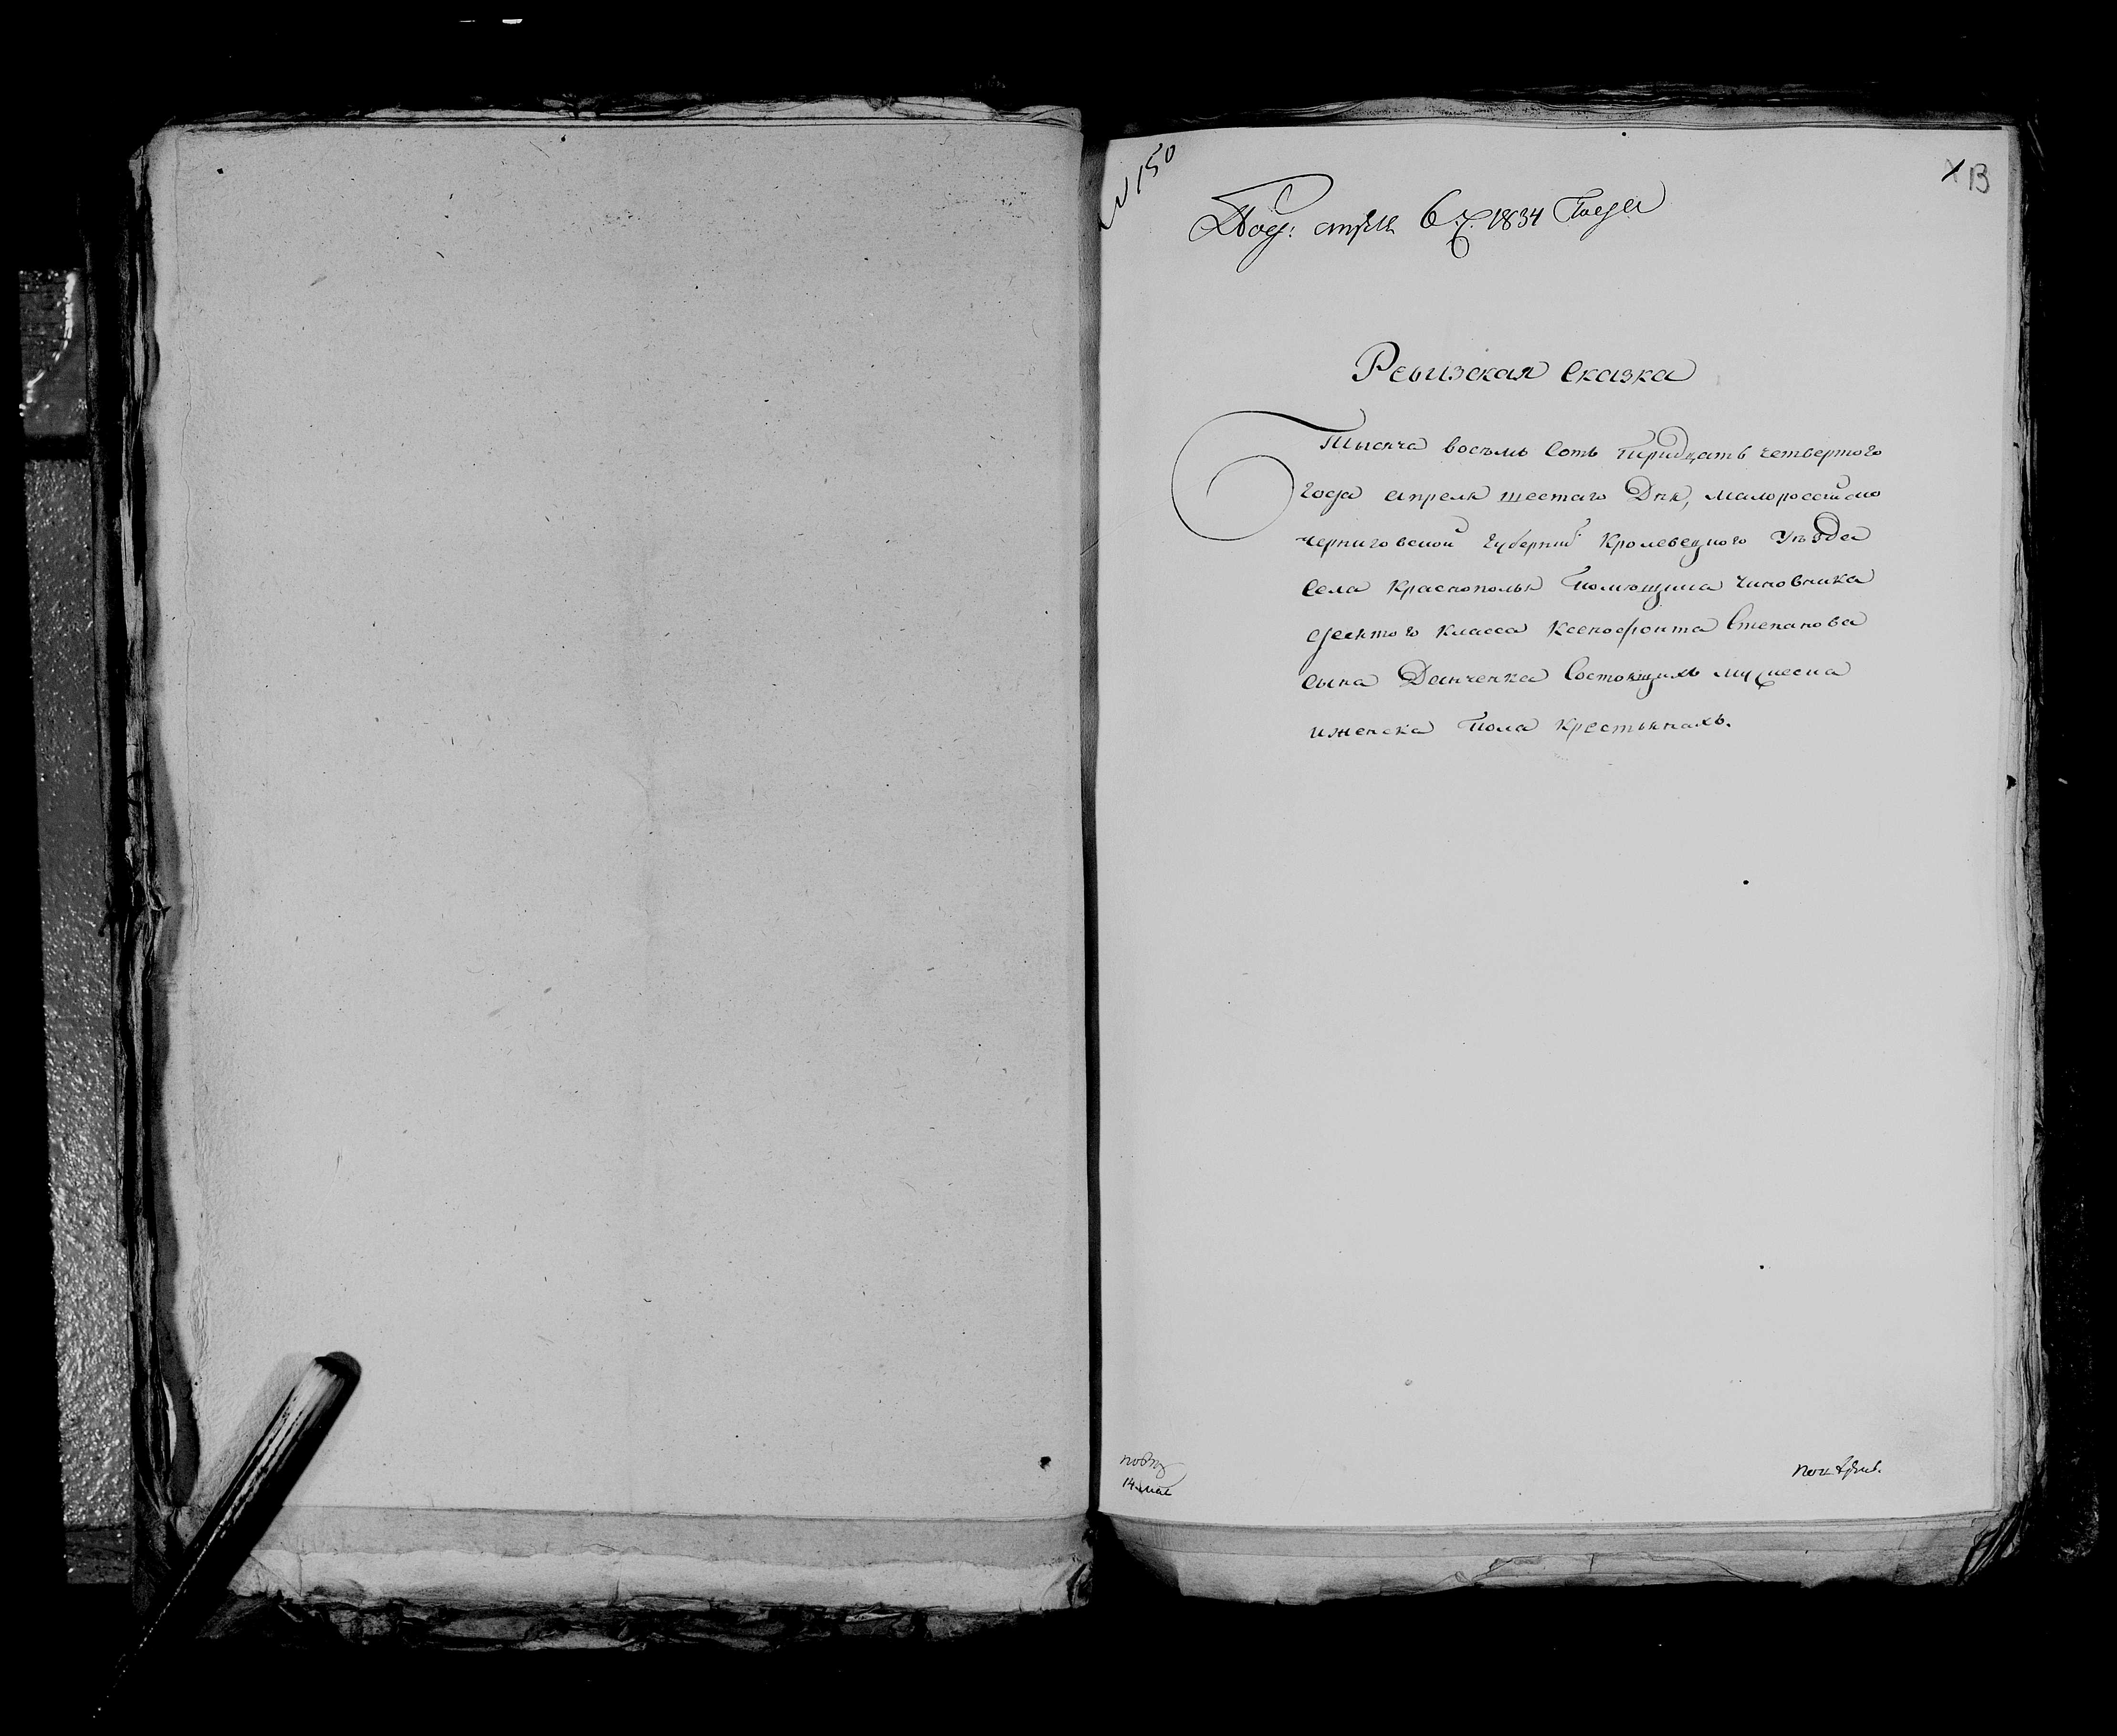 № 150
13
Под: апреля 6 д. 1834 Года
Ревизская Сказка
Тысяча восемь Сотъ Тридцать четвертого
года апреля шестаго Дня, малоросси́ско
черниговской губернии Кролевецкого Уезда
Села Краснополья Помющика чиновника
десятого класса Ксенофонта Степанова
сына Данченка Состоящихъ мужеска
иженска Пола Крестьянахъ.
14 мая